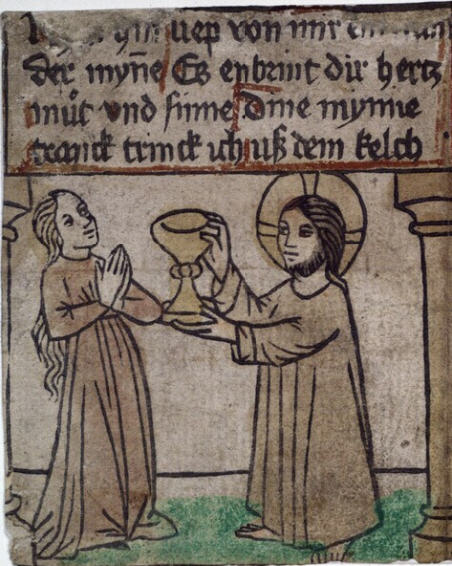 liep von mir
der myñe Es enbrint dir hertz
můt vnd sinne Dine mynne
tranck trinck ich uß dem kelch